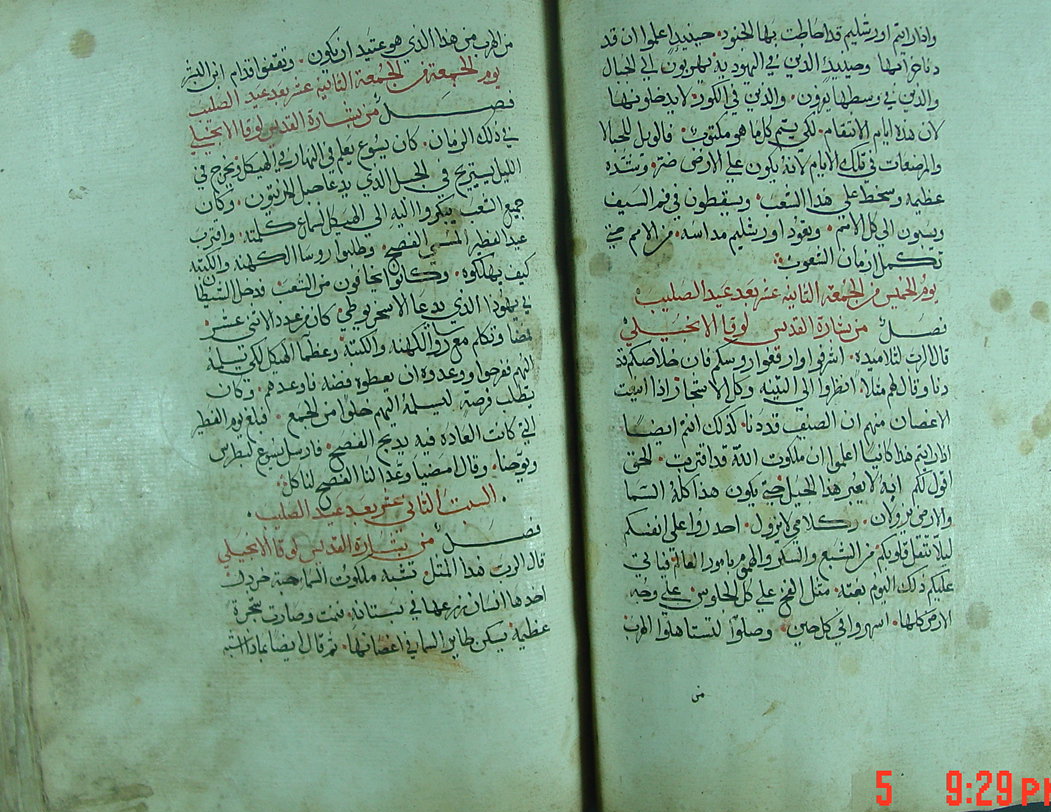 واذا رايتم اورشليم قد احاطت بها الجنود. حينيد اعلموا ان قد
دنا خرابها وحينيد الذين في اليهوديه يهربون الى الجبال
والذين في وسطها يفرون. والذين في الكور لا يدخلونها
لان هذه ايام الانتقام. لكي يتم كلما هو مكتوب. فالويل للحبالا
والمرضعات في تلك الايام لانه يكون على الارض ضر وشده
عظيمه وسخط على هذا الشعب. ويسقطون في فم السيف
ويسبون الى كل الامم. وتعود اورشليم مداسه. من الامم حتى
تكمل ازمان الشعوب.
يوم الخميس من الجمعة الثانية عشر بعد عيد الصليب
فصل من بشارة القديس لوقا الانجيلي
قال الرب لتلاميذه. اشرفوا وارفعوا روسكم فان خلاصكم قد
دنا وقال لهم مثلا. انظروا الى التينه وكل الاشجار اذا انبتت
الاغصان منهم ان الصيف قد دنا. كذلك انتم ايضا
اذا رايتم هذا كاينا اعلموا ان ملكوت الله قد اقتربت. الحق
اقول لكم انه لا يعبر هذا الجيل حتى يكون هذا كله السما
والارض يزولان. وكلامي لا يزول. احدروا على انفسكم
ليلا تتقل قلوبكم من الشبع والسكر والهم بامور العالم فياتي
عليكم ذلك اليوم بغته. مثل الفخ على كل الجلوس على وجه
الارض كلها. اسهروا في كل حين. وصلوا لتستاهلوا الهرب
من
من الهرب من هذا الذي هو عتيد ان يكون. وتقفوا قدام ابن البشر
يوم الجمعة من الجمعة الثانية عشر بعد عيد الصليب
فصل من بشارة القديس لوقا الانجيلي
في ذلك الزمان. كان يسوع يعلم في النهار في الهيكل ويخرج في
الليل يستريح في الجبل الذي يدعا جبل الزيتون. وكان
جميع الشعب يبتكروا اليه الى الهيكل لسماع كلمته. واقترب
عيد الفطير المسمى الفصح. وطلبوا روسا الكهنه والكتبه
كيف يهلكوه. وكانوا يخافون من الشعب. فدخل الشيطان
في يهوذا الذي يدعا الاسخريوطي كان من عدد الاثني عشر.
فمضا وتكلم مع روسا الكهنه والكتبة. وعظما الهيكل لكي يسلمه
اليهم ففرحوا ووعدوه ان يعطوه فضه فاوعدهم. وكان
يطلب فرصه ليسلمه اليهم خلوا من الجمع. فبلغ يوم الفطير
التي كانت العاده فيه يذبح الفصح. فارسل يسوع لبطرس
ويوحنا. وقال امضيا وعدا لنا الفصح لناكل.
السبت الثاني عشر بعد عيد الصليب.
فصل من بشارة القديس لوقا الانجيلي
قال الرب هذا المثل. تشبه ملكوت السما حبة خردل
اخدها انسان زرعها في بستانه. فنمت وصارت شجرة
عظيمة يسكن طاير السما في اغصانها. ثم قال ايضا بماذا اشبه
5 9:29 PM